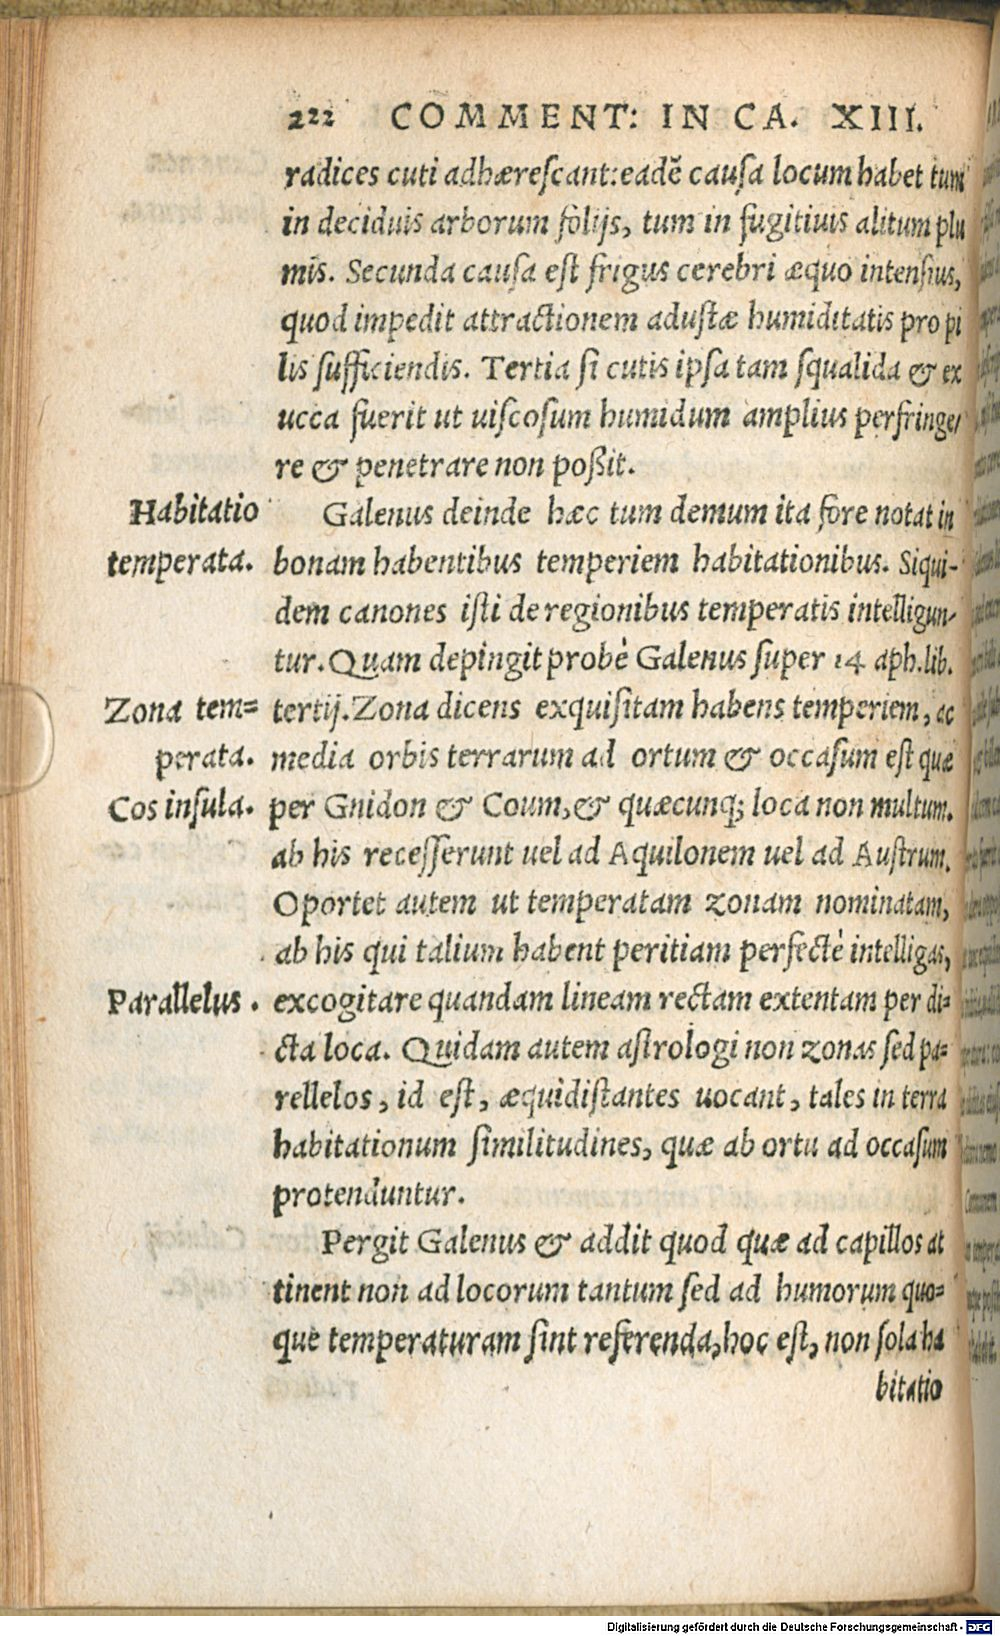 222 COMMENT: IN CA. XIII.
radices cuti adhærescant: eadẽ causa locum habet tum
in deciduis arborum folijs, tum in fugitiuis alitum plu
mis. Secunda causa est frigus cerebri æquo intensius,
quod impedit attractionem adustæ humiditatis pro pi
lis sufficiendis. Tertia si cutis ipsa tam squalida & ex
ucca fuerit ut uiscosum humidum amplius perfringe/
re & penetrare non poßit.
Habitatio
temperata.
Galenus deinde hæc tum demum ita fore notat in
bonam habentibus temperiem habitationibus. Siqui-
dem canones isti de regionibus temperatis intelligun/
tur. Quam depingit probè Galenus super 14 aph. lib.
Zona tem=
perata.
Cos insula.
tertij. Zona dicens exquisitam habens temperiem, ac
media orbis terrarum ad ortum & occasum est quæ
per Gnidon & Coum, & quæcunq; loca non multum.
ab his recesserunt uel ad Aquilonem uel ad Austrum.
Oportet autem ut temperatam zonam nominatam,
ab his qui talium habent peritiam perfectè intelligas,
Parallelus.
excogitare quandam lineam rectam extentam per di=
cta loca. Quidam autem astrologi non zonas sed pa=
rellelos, id est, æquidistantes uocant, tales in terra
habitationum similitudines, quæ ab ortu ad occasum
protenduntur.
Pergit Galenus & addit quod quæ ad capillos at
tinent non ad locorum tantum sed ad humorum quo=
que temperaturam sint referenda, hoc est, non sola ha
bitatio
Digitalisierung gefördert durch die Deutsche Forschungsgemeinschaft - DFG